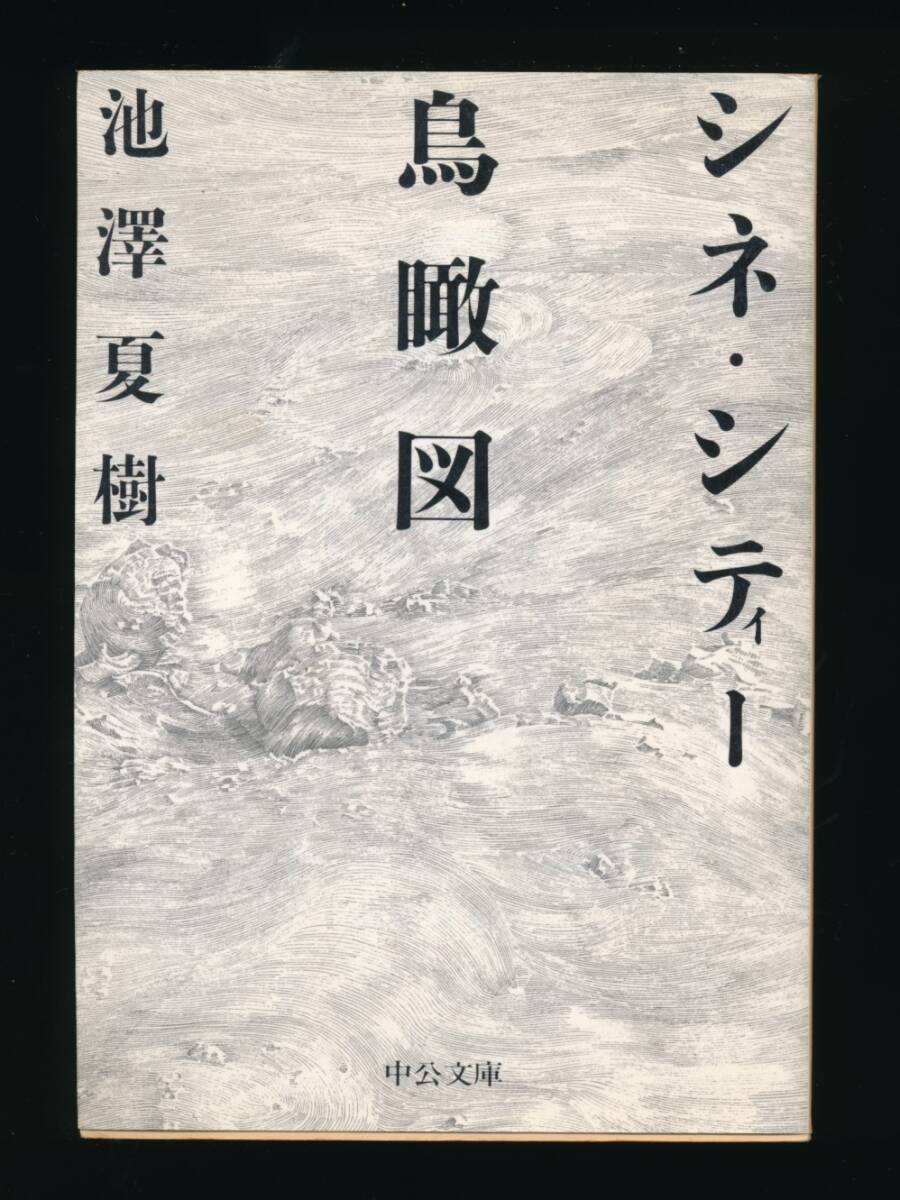 シネ・シティー
鳥瞰図
池澤夏樹
中公文庫